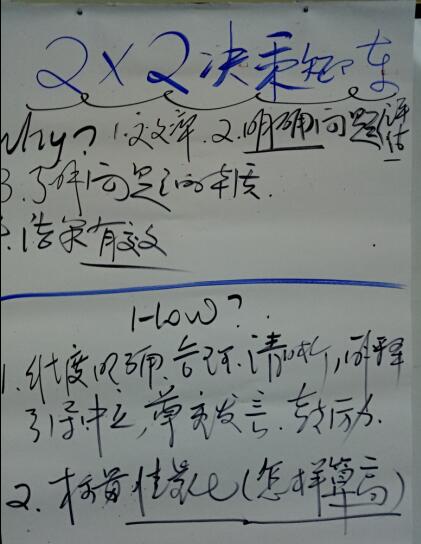 2×2决策矩阵
Why? 1.效率. 2.明确问题评估
3.了解问题的本质.
4.结果有效
How?
1.维度明确.合理.清晰,解释
引导.中立,尊重发言.鼓励.
2.标量(怎样算高)